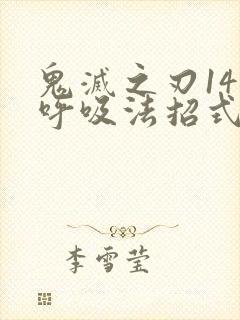 鬼滅之刃14
呼吸法招式
李雪莹